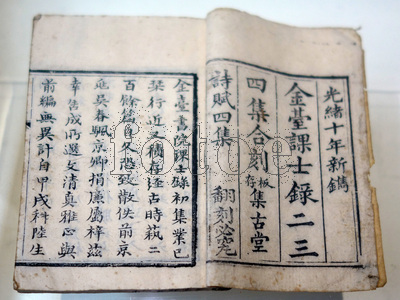 光緒十年新鐫
金臺課士錄二三
四集合刻 板存 集古堂
詩賦四集 翻刻必究
金臺書院課士錄初集業已
栞行近又積存古時二
百餘篇冬恐致散佚前京
兆吳春颿京卿捐廉屬梓茲
幸告成所選文清真雅正與
前編無異計自甲戌科陸生
fotoe